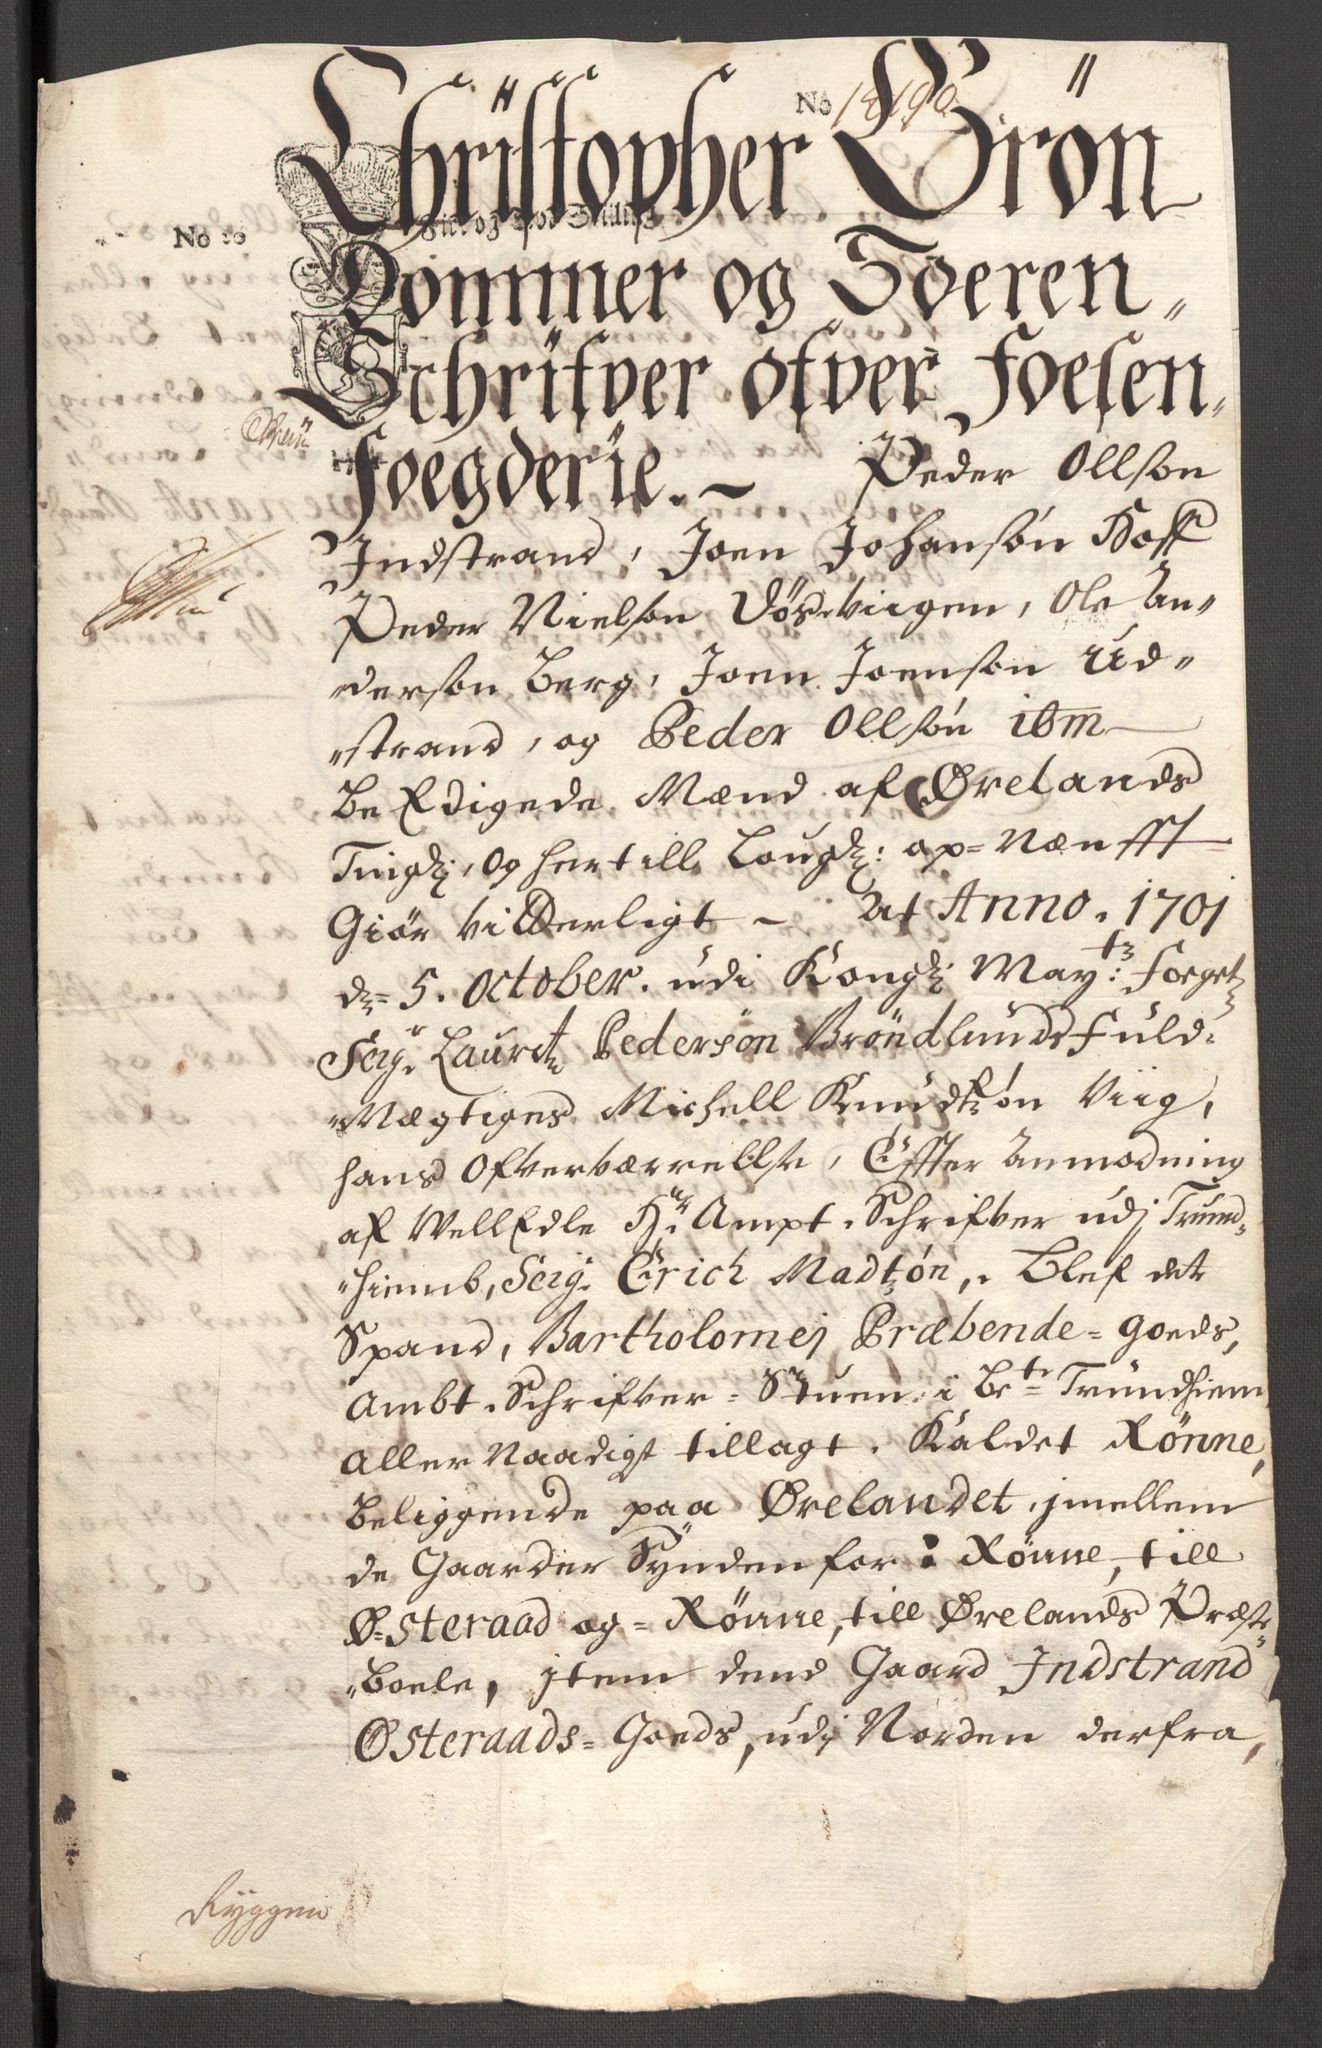 No 18190
Christopher Grön
No 10
Fire og Tive Skilling
Dommer og Soeren-
Schrifver ofver Foesen-
Foegderie. - Peder Ollsøn
Indstrand, Joen Johansøn Hoff
Peder Nielsøn Døsvigen, Ole An-
dersøn Berg, Joen Joensøn Ud-
strand, og Peder Ollsøn ibm
BeEdigede Mænd af Ørelands
Tingl:, Og hertill Laugl: op-Næfft
Giør vitterligt - At Anno. 1701
d. 5. October. udi Kongl: Mayts: Foeget
Seigr. Lauritz Pedersøn Brøndlunds Fuld-
Mægtiges Michell Knudtzøn Viig,
hans Ofverværrelse, Effter Anmodning
af WellEdle Hr. Ampt-Schrifver udj Trund-
hiemb, Seigr. Erich Madtzøn, Blef det
Spand, Bartholomej Præbende-goeds,
Ambt-Schrifver-Stuen i Bete Trundhiem
Aller Naadigst tillagt. Kaldet Rønne,
beliggende paa Ørelandet, jmellem
de Gaarder Synden for: Rønne, till
Østeraad og- Rønne, till Ørelands Præste-
boele, jtem dend Gaard Indstrand
Østeraads-Goeds, udj Norden derfra,
Ryggen